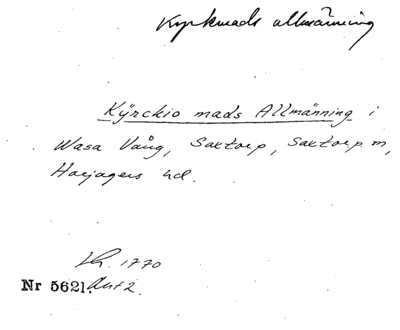 Kyrkmads allmänning
Kÿrckio mads Allmänning i
Wasa Vång, Saxtorp, Saxtorp sn,
Harjagers hd.
LA. 1770
Nr 5621. Akt 2.